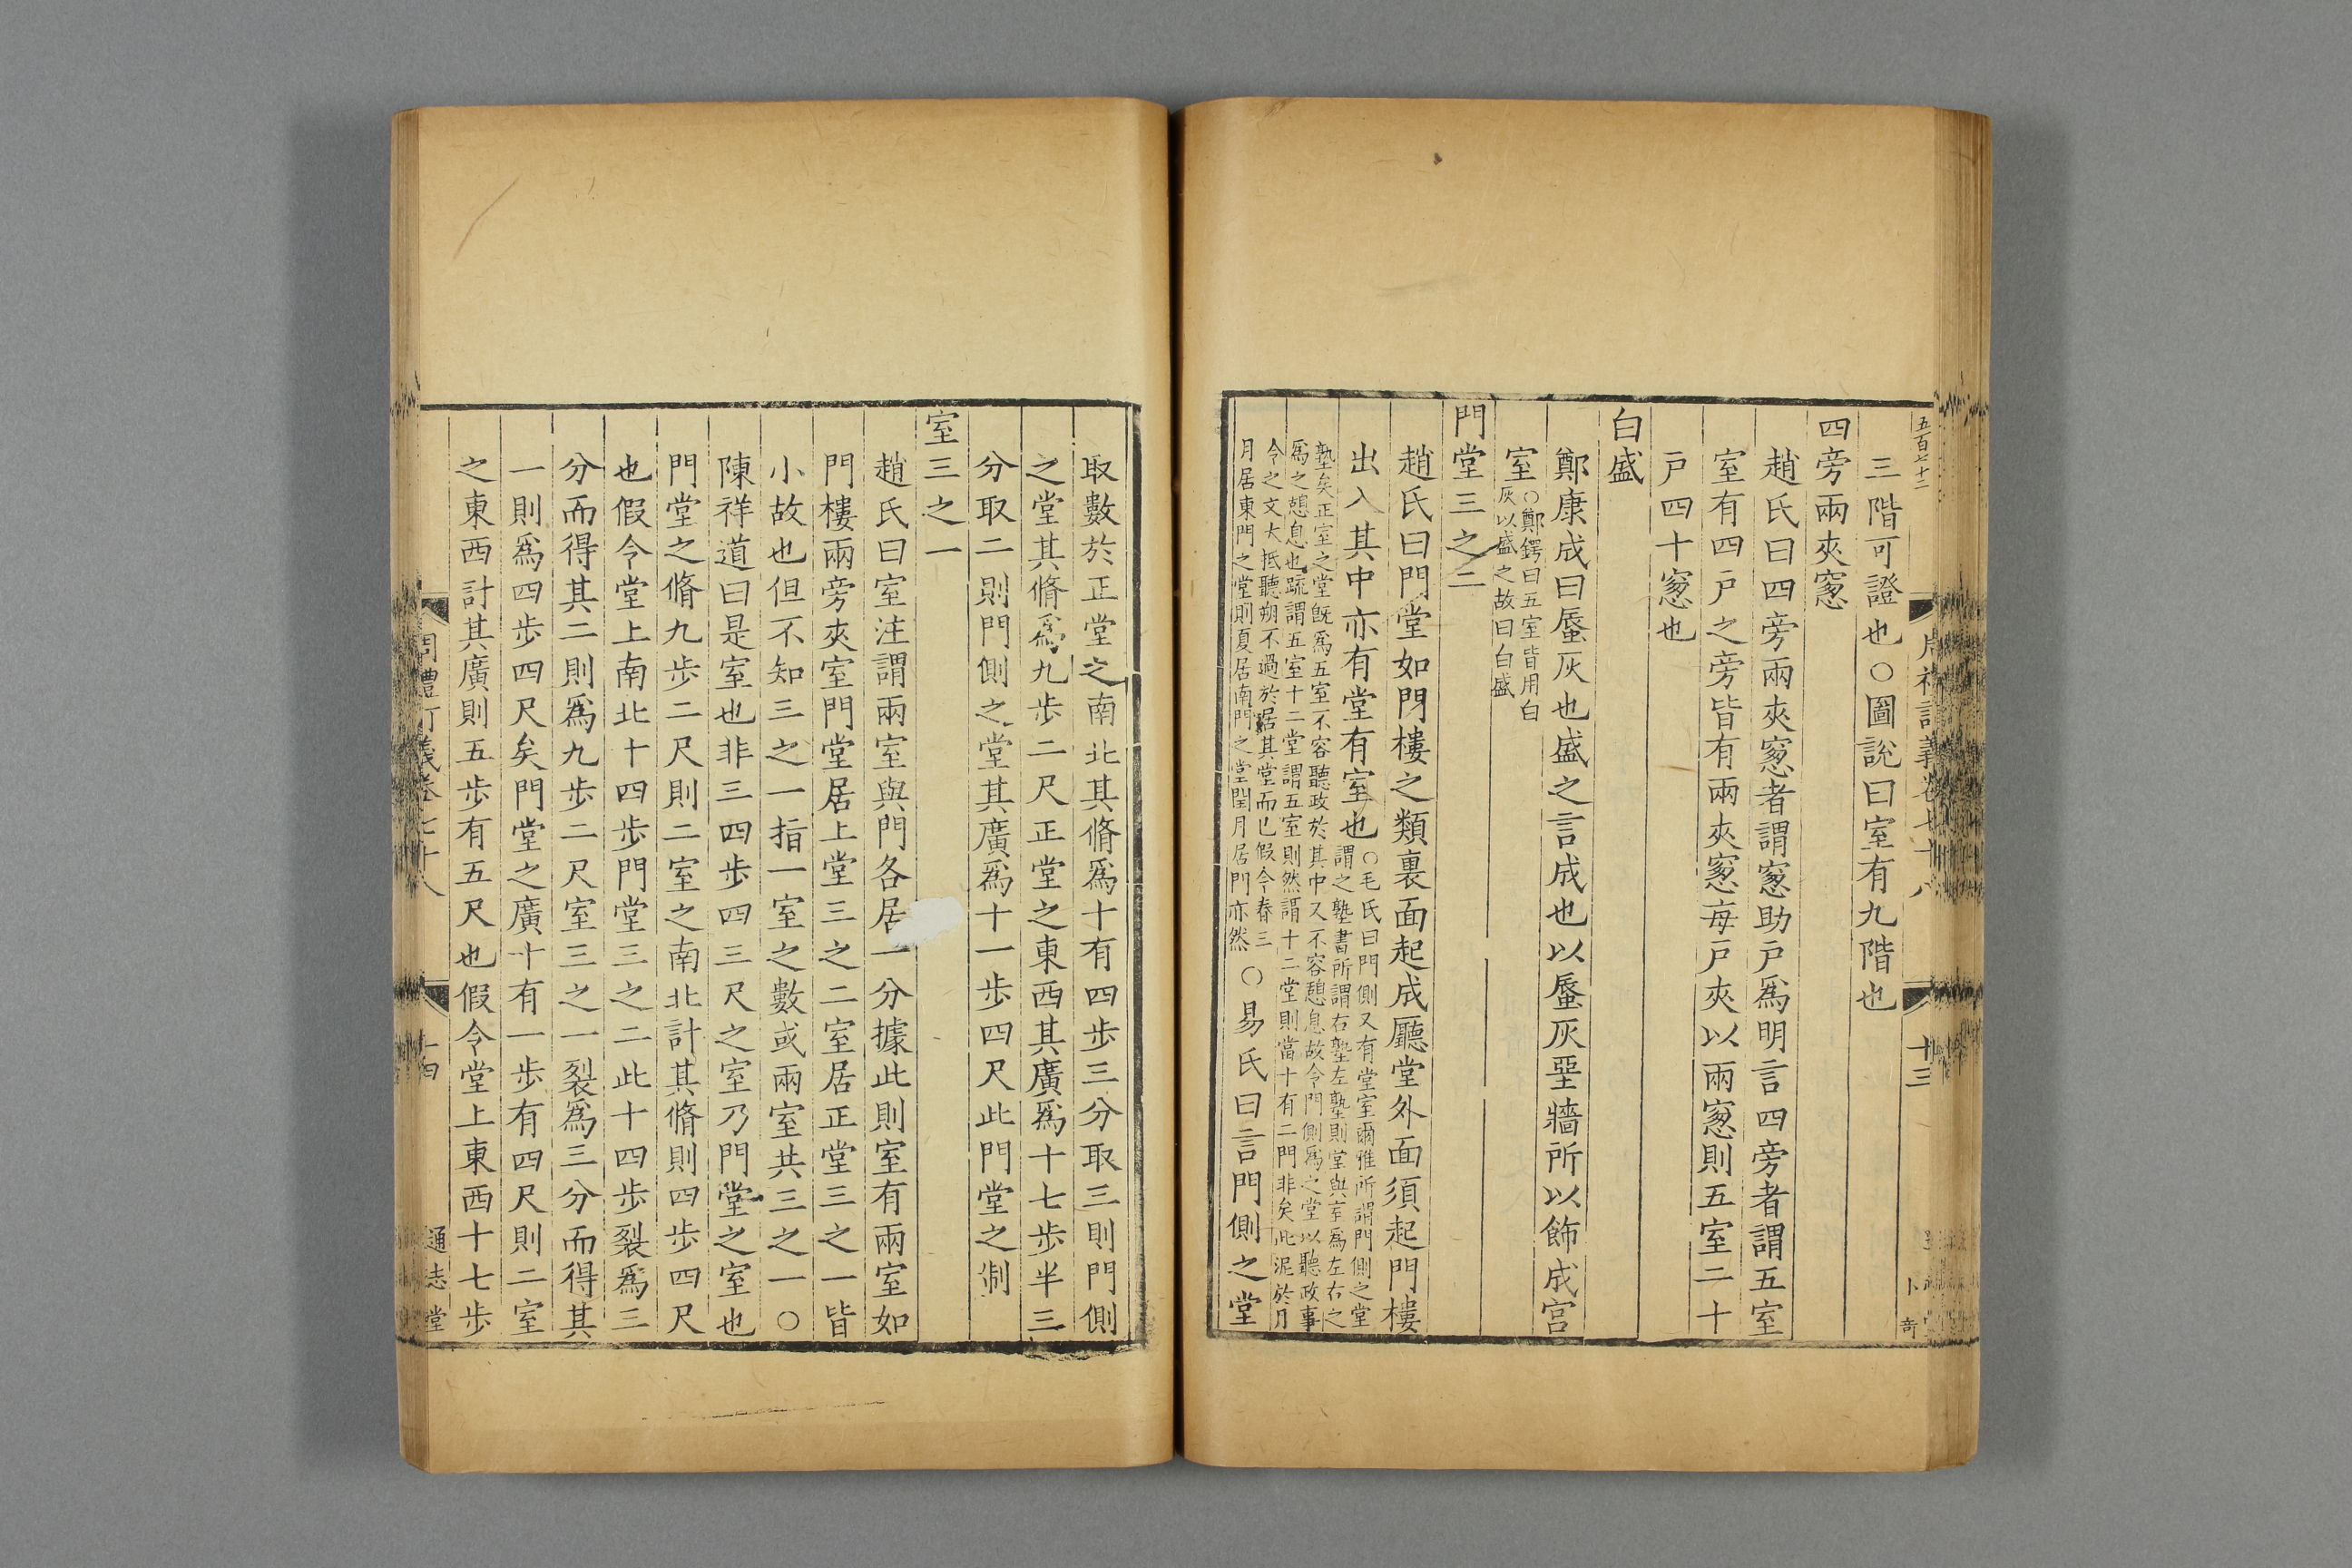 五百七十二
三階可證也○圖說曰室有九階也
四旁兩夾窻
趙氏曰四旁兩夾窻者謂窻助戶爲明言四旁者謂五室
室有四戶之旁皆有兩夾窻每戶夾以兩窻則五室二十
戶四十窻也
白盛
鄭康成曰蜃灰也盛之言成也以蜃灰堊牆所以飾成宫
室○鄭鍔曰五室皆用白
灰以盛之故曰白盛
門堂三之二
趙氏曰門堂如門樓之類裏面起成廳堂外面須起門樓
出入其中亦有堂有室也○毛氏曰門側又有堂室爾雅所謂門側之堂
謂之塾書所謂右塾左塾則堂與室爲左右之
塾矣正室之堂旣爲五室不容聽政於其中又不容憩息故令門側爲之堂以聽政事
爲之憩息也疏謂五室十二堂謂五室則然謂十二堂則當十有二門非矣此泥於月
令之文大抵聽朔不過於居其堂而已假令春三
月居東門之堂則夏居南門之堂閏月居門亦然○易氏曰言門側之堂
周禮訂義卷七十八
十三
卜奇
取數於正堂之南北其脩爲十有四步三分取三則門側
之堂其脩爲九步二尺正堂之東西其廣爲十七步半三
分取二則門側之堂其廣爲十一步四尺此門堂之制
室三之一
趙氏曰室注謂兩室與門各居一分據此則室有兩室如
門樓兩旁夾室門堂居上堂三之二室居正堂三之一皆
小故也但不知三之一指一室之數或兩室共三之一○
陳祥道曰是室也非三四步四三尺之室乃門堂之室也
門堂之脩九步二尺則二室之南北計其脩則四步四尺
也假令堂上南北十四步門堂三之二此十四步裂爲三
分而得其二則爲九步二尺室三之一裂爲三分而得其
一則爲四步四尺矣門堂之廣十有一步有四尺則二室
之東西計其廣則五步有五尺也假令堂上東西十七步
周禮訂義卷七十八
十四
通志堂